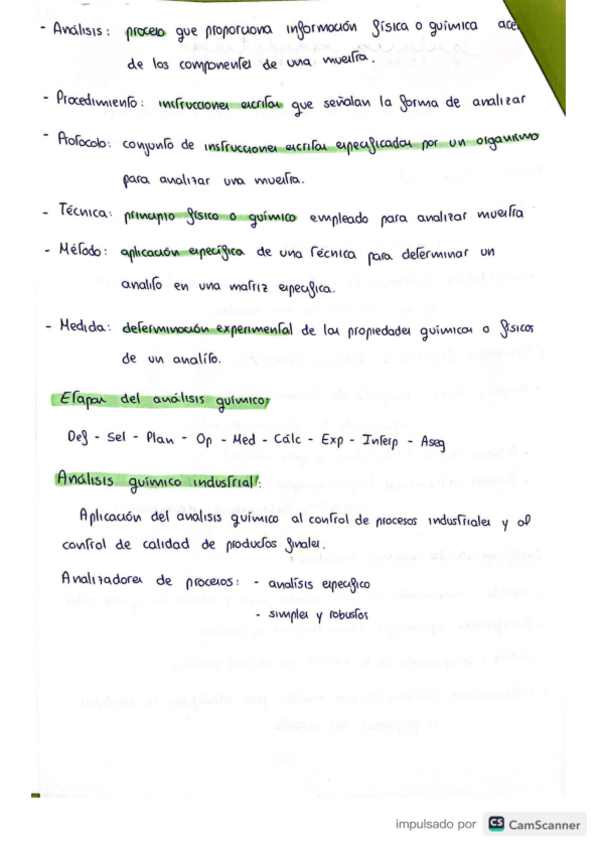 - Análisis: proceso que proporciona información física o química ace
de los componentes de una muestra.
- Procedimiento: instrucciones escritas que señalan la forma de analizar
- Protocolo: conjunto de instrucciones escritas especificadas por un organismo
para analizar una muestra.
- Técnica: principio físico o químico empleado para analizar muestra
- Método: aplicación específica de una técnica para determinar un
analito en una matriz específica.
- Medida: determinación experimental de las propiedades químicas o físicas
de un analito.
Etapas del análisis químico:
Def - Sel - Plan - Op - Med - Cálc - Exp - Interp - Aseg
Análisis químico industrial:
Aplicación del analisis químico al control de procesos industriales y al
control de calidad de productos finales.
Analizadores de procesos: - analísis específico
- simples y robustos
impulsado por CS CamScanner